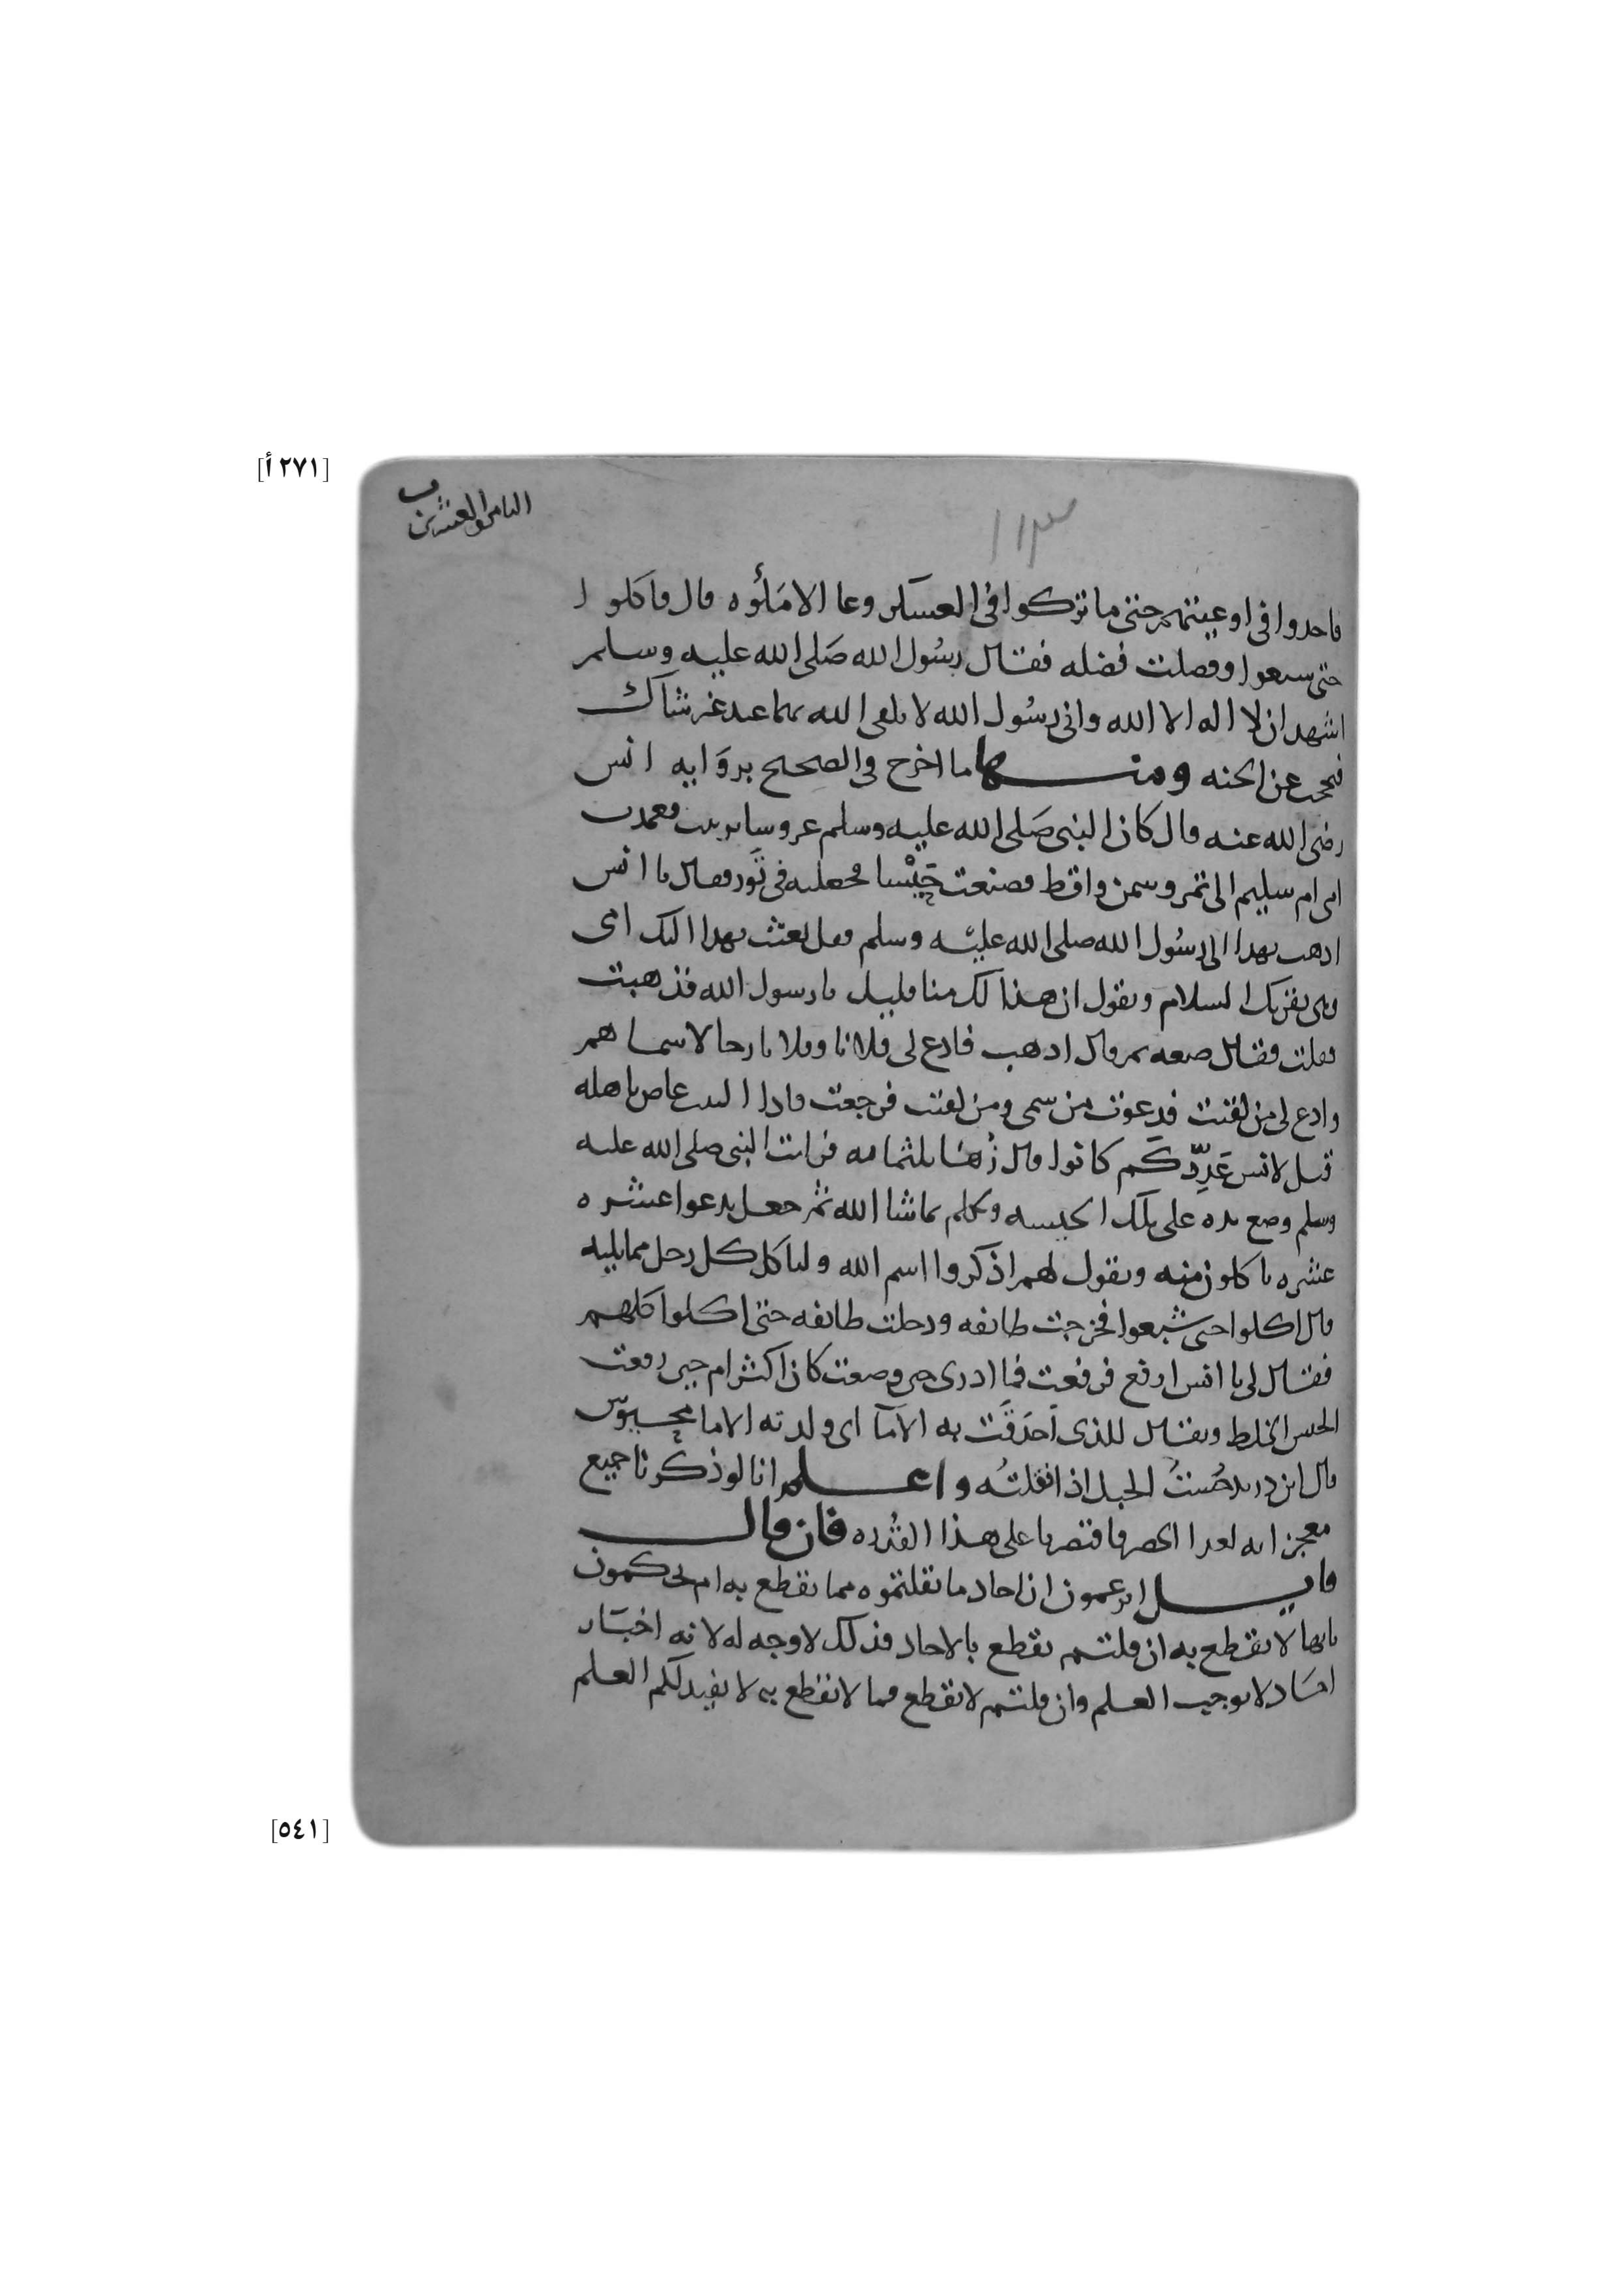 [٢٧١ أ]
الثامن والعشرين
١١٣
فاخذوا في اوعيتهم حتى ما تركوا في العسكر وعا الا ملأوه قال فاكلوا
حتى شبعوا وفضلت فضله فقال رسول الله صلى الله عليه وسلم
اشهد ان لا اله الا الله واني رسول الله لا يلقى الله بهما عبد غير شاك
فيحجب عن الجنه ومنها ما اخرج في الصحيح برواية انس
رضي الله عنه قال كان النبي صلى الله عليه وسلم عروسا بزينب فعمدت
امي ام سليم الى تمر وسمن واقط فصنعت حَيْسا فجعلته في تَور فقالت يا انس
اذهب بهذا الى رسول الله صلى الله عليه وسلم فقل بعثت بهذا اليك امي
وهي تقريك السلام وتقول ان هذا لك منا قليل يا رسول الله فذهبت
فقلت فقال ضعه ثم قال اذهب فادع لي فلانا وفلانا رجالا سماهم
وادع لي من لقيت فدعوت من سمى ومن لقيت فرجعت فاذا البيت غاص باهله
قيل لانس عَدَدكم كانوا قال زُها ثلثمايه فرايت النبي صلى الله عليه
وسلم وضع يده على تلك الحيسه وتكلم بما شا الله ثم جعل يدعوا عشره
عشره ياكلون منه ويقول لهم اذكروا اسم الله ولياكل كل رجل مما يليه
قال اكلوا حتى شبعوا فخرجت طائفه ودخلت طائفه حتى اكلوا كلهم
فقال لي يا انس ارفع فرفعت فما ادري حين وضعت كان اكثر ام حين رفعت
الحيس الخلط ويقال للذي احدقت به الاما اي ولدته الاما محيوس
قال ابن دريد حُستُ الحبل اذا فتلتُه واعلم انا لو ذكرنا جميع
معجزاته لعدا الحصر فاقتصرنا على هذا القدر فان قال
قايل اتزعمون ان احاد ما نقلتموه مما نقطع به ام تحكمون
بانها لا نقطع به ان قلتم نقطع بالاحاد فذلك لا وجه له لانه اخبار
احاد لا توجب العلم وان قلتم لا نقطع فما لا نقطع به لا يفيدكم العلم
[٥٤١]